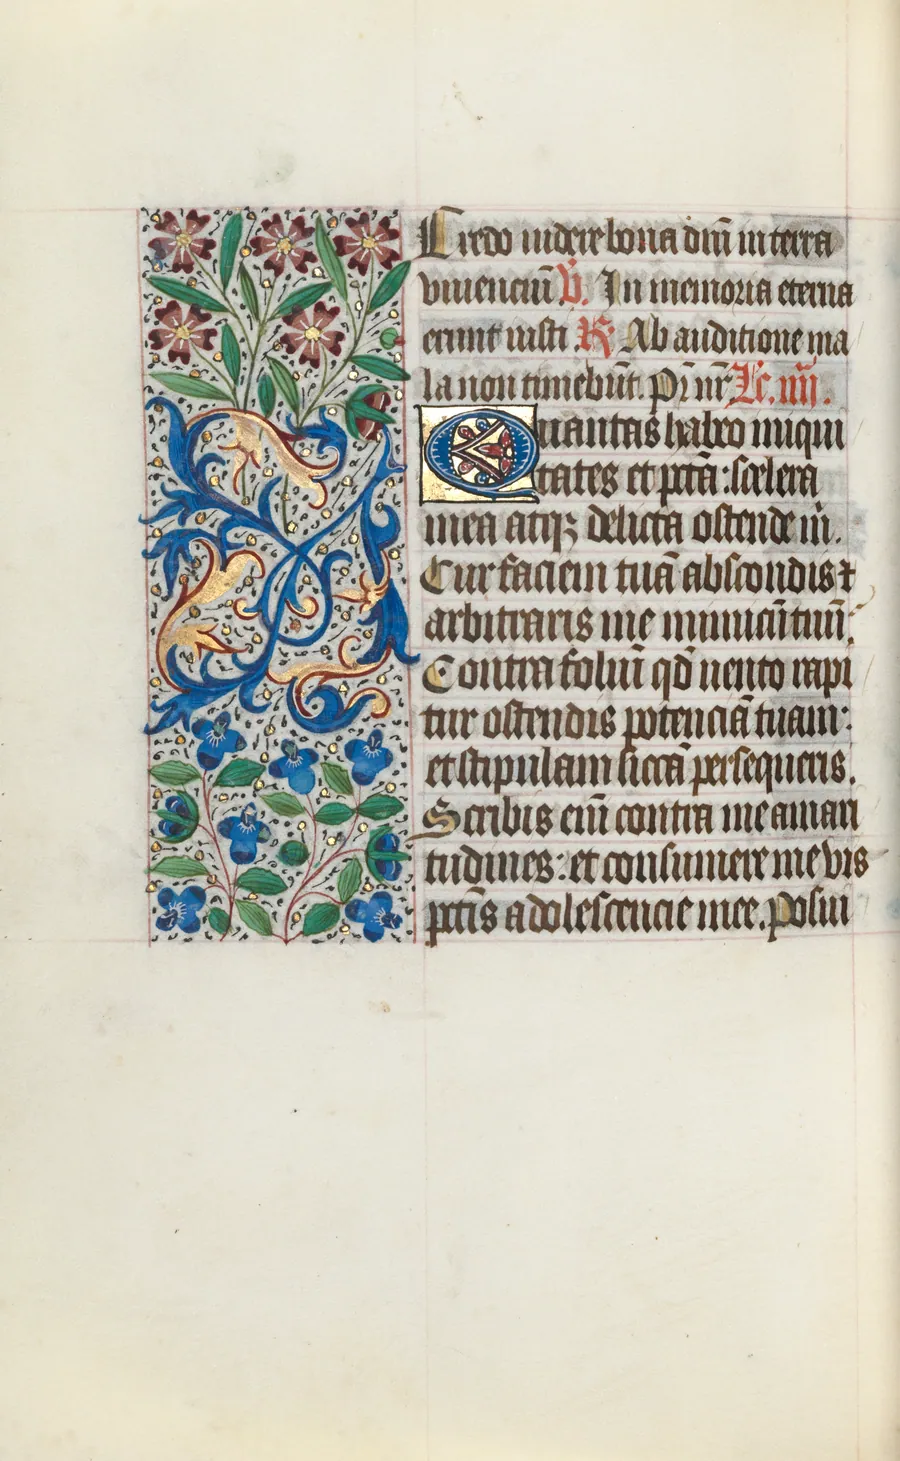 Credo uidere bona dñi in terra
viuenciũ V̄. In memoria eterna
erunt iusti R̄ Ab auditione ma
la non timebũt. Pr̄ nr̄ Lc̄. iiij.
Quantas habeo iniqui
tates et pctã: scelera
mea atqꝫ delicta ostende m̄.
Cur faciem tuã abscondis ⁊
arbitraris me inimicũ tuũ:
Contra foliũ qď uento rapi
tur ostendis potenciã tuam:
et stipulam siccã persequeris.
Scribis eñi contra me amari
tudines: et consumere me vis
pctĩs adolescencie mee. Posui